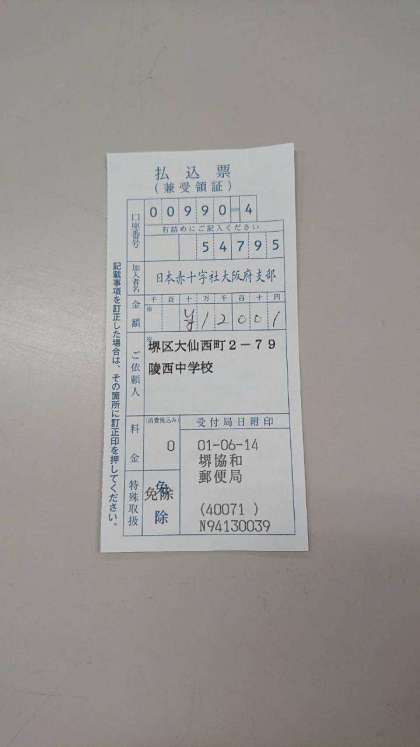 払込票
(兼受領証)
口座番号
00990-4
右詰めにご記入ください
54795
加入者名
日本赤十字社大阪府支部
金額
千百十万千百十円
¥12001
ご依頼人
堺区大仙西町2-79
陵西中学校
料金
(消費税込み)
0
特殊取扱
免除
免除
受付局日附印
01-06-14
堺協和
郵便局
(40071)
N94130039
記載事項を訂正した場合は、その箇所に訂正印を押してください。